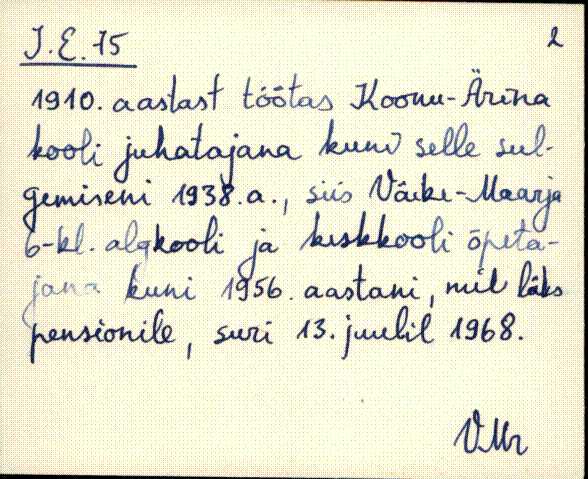 J.E. 75
2
1910. aastast töötas Koonu-Ärina
kooli juhatajana kuni selle sul-
gemiseni 1938.a., siis Väike-Maarja
6-kl. algkooli ja keskkooli õpeta-
jana kuni 1956. aastani, mil läks
pensionile, suri 13. juulil 1968.
VMr